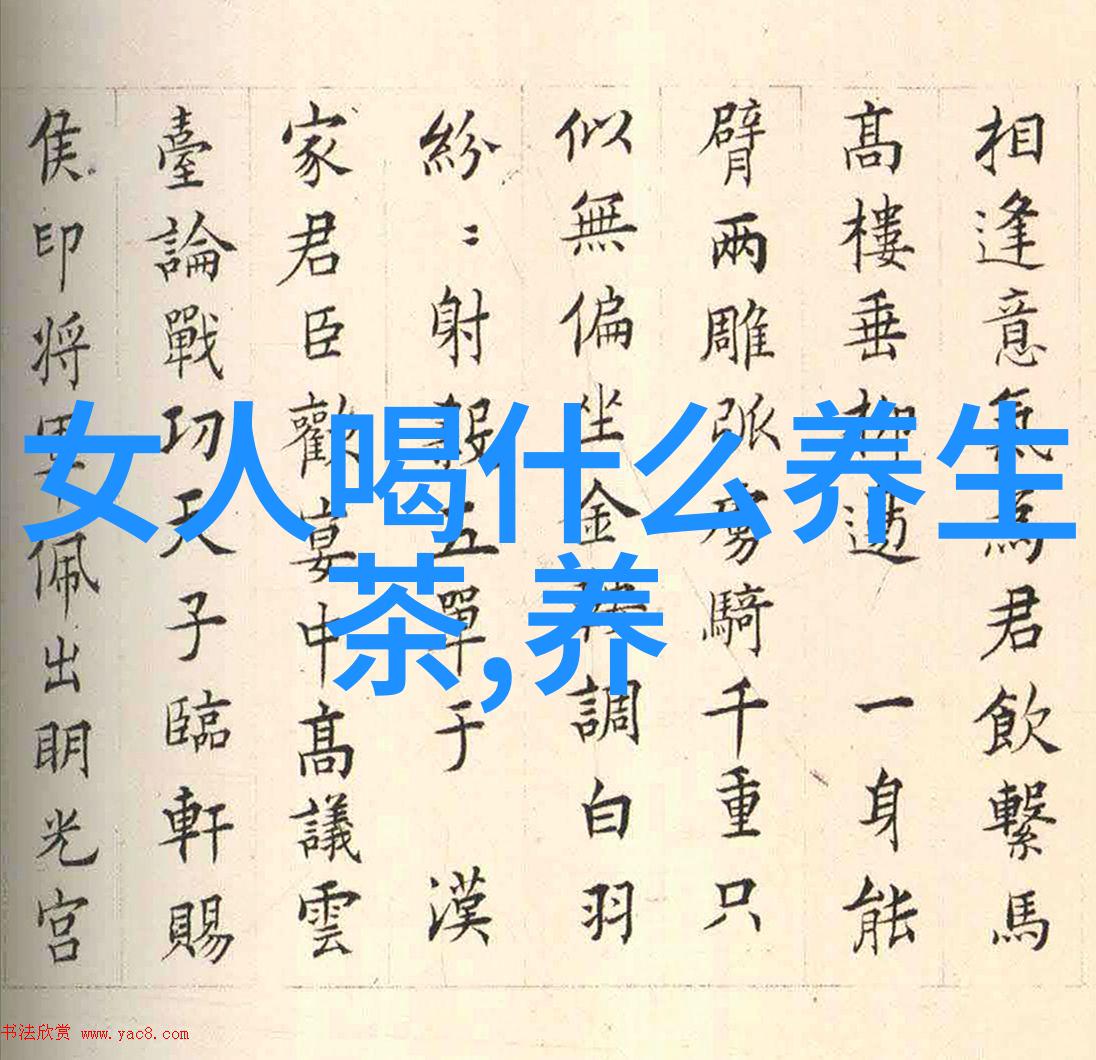 相逢意氣爲君飲繫馬
髙樓垂柳邉 一身能
臂兩雕弧虜騎千重只
似無偏坐金鞍調白羽
紛〻射殺五單于 漢
家君臣歡宴中髙議雲
臺論戰功天子臨軒賜
侯印将軍佩出明光宮
女人喝什么养生
茶,养
书法欣赏 www.yac8.com